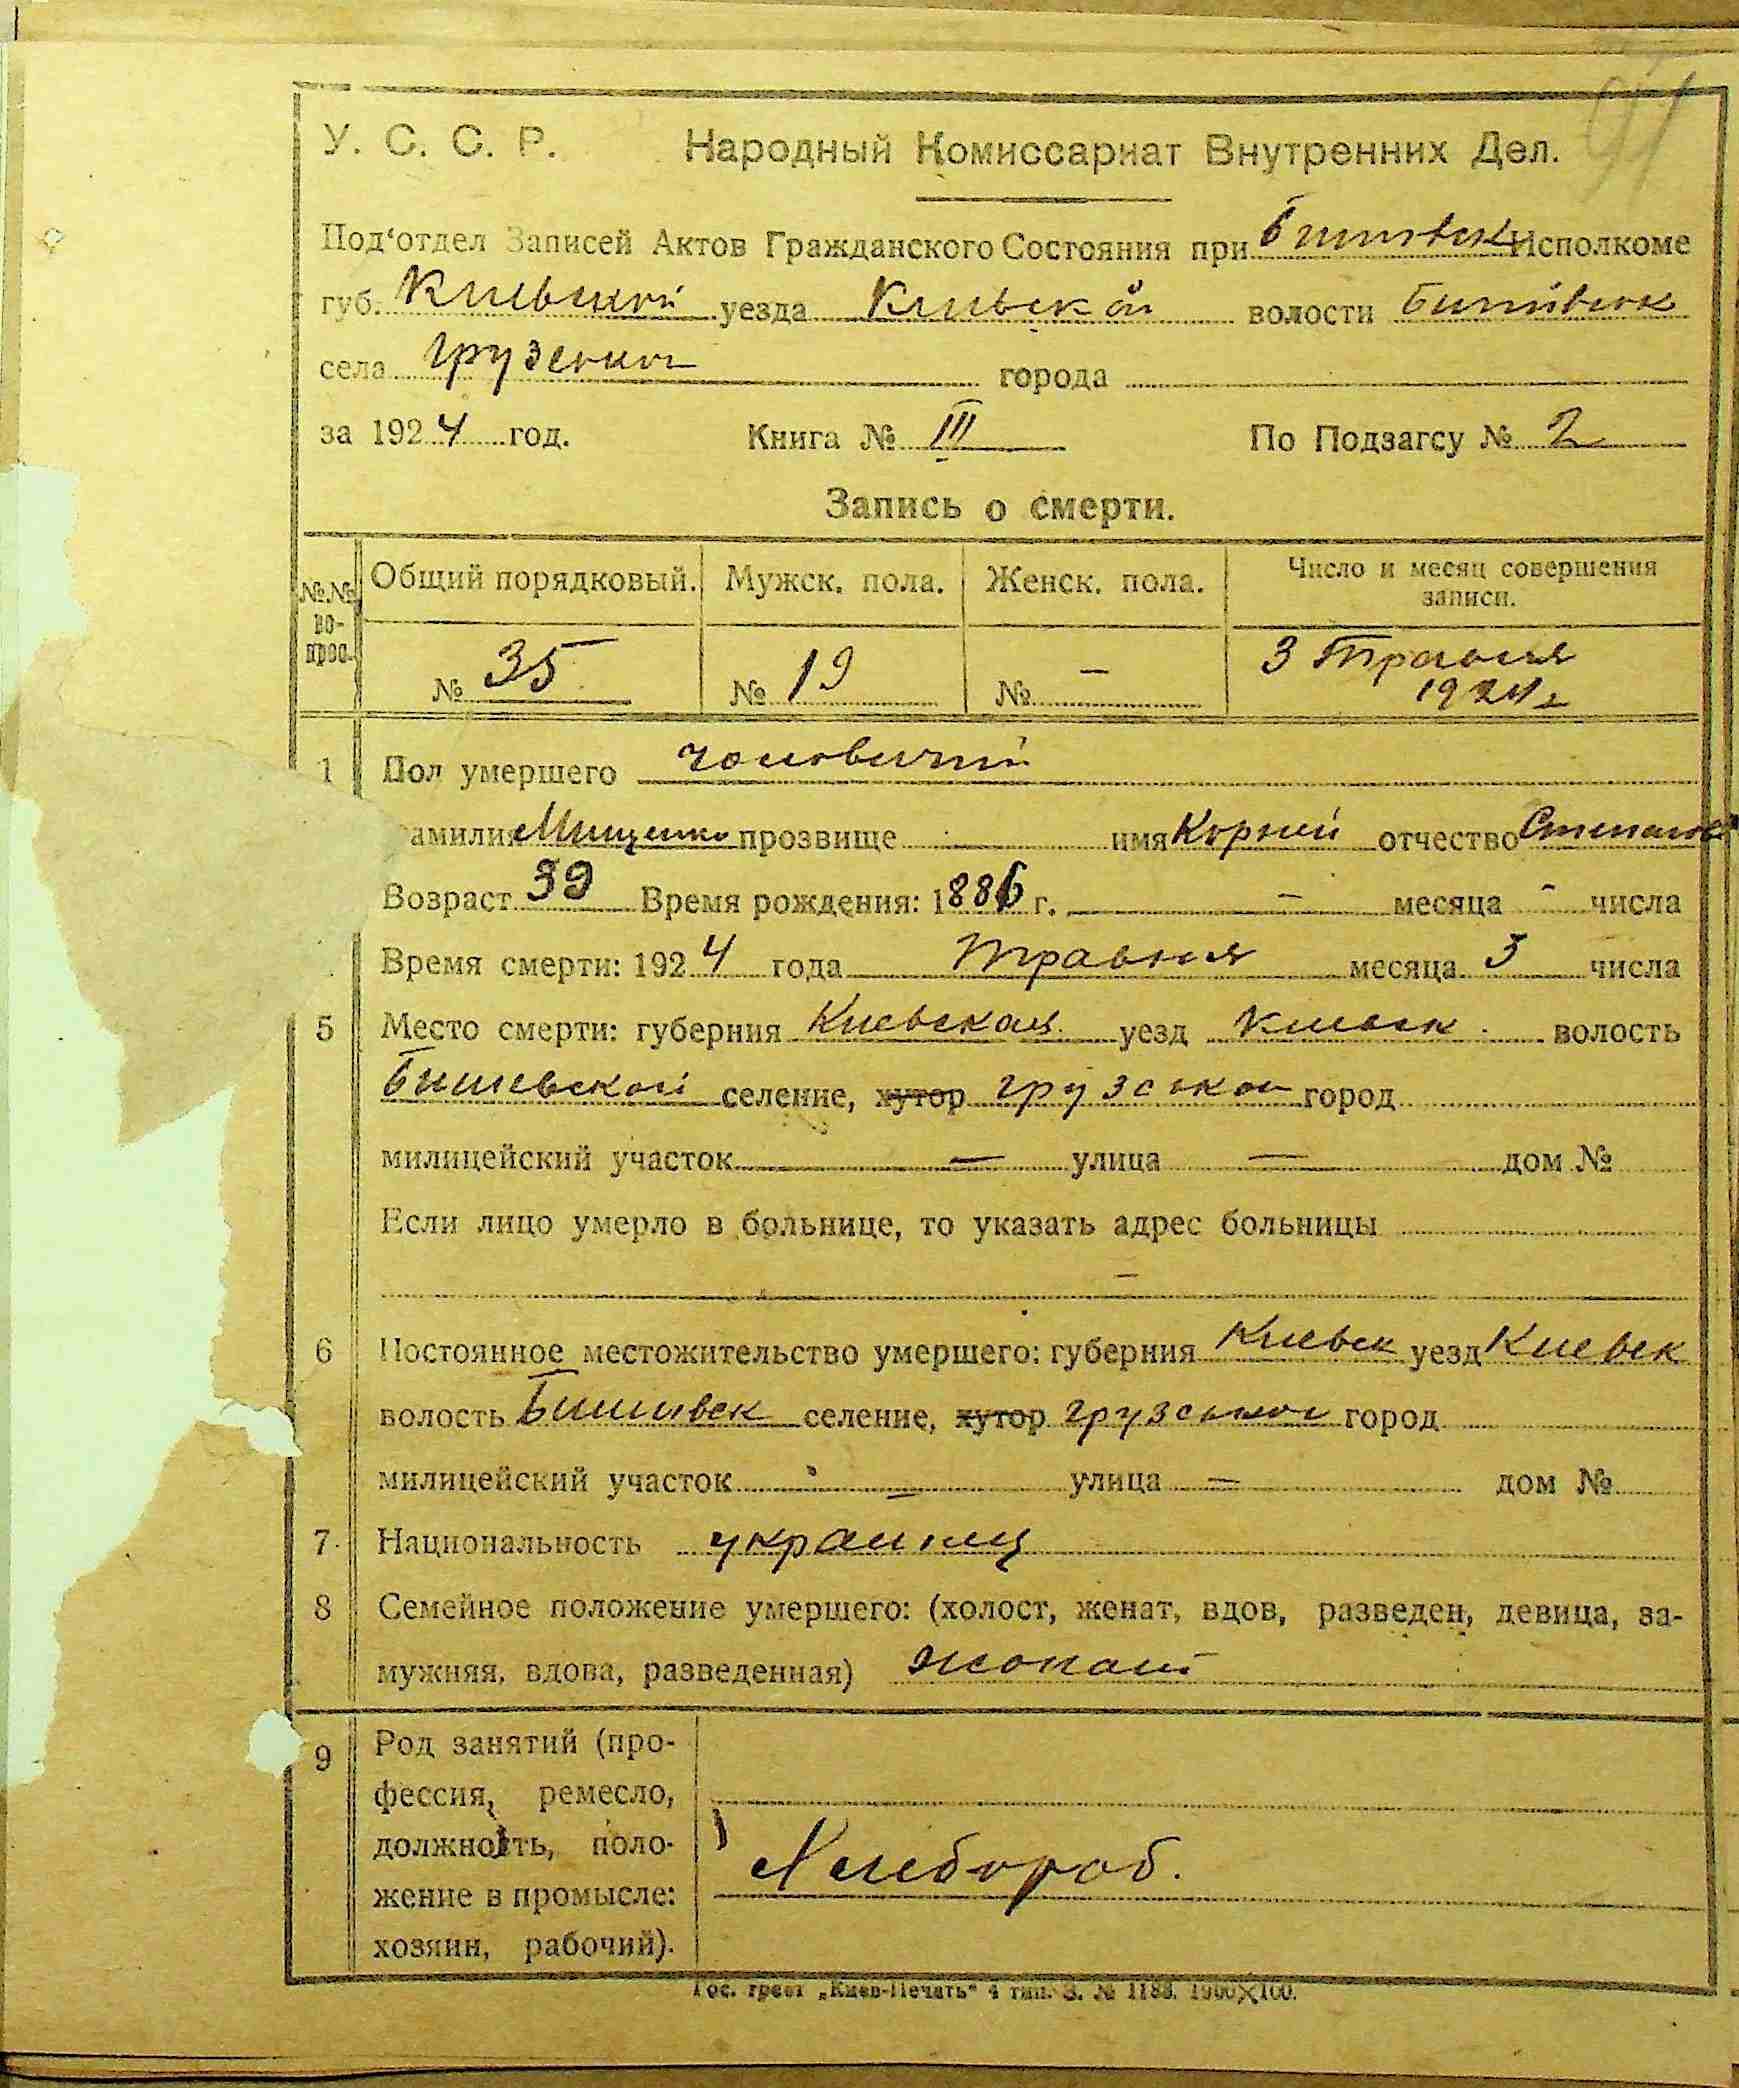 91
У. С. С. Р. Народный Комиссариат Внутренних Дел.
Под‘отдел Записей Актов Гражданского Состояния при Бишевск Исполкоме
губ. Киевской уезда Киевской волости Бишівск
села Грузской города
за 1924 год. Книга № III По Подзагсу № 2
Запись о смерти.
№№ во-прос. Общий порядковый. Мужск. пола. Женск. пола. Число и месяц совершения записи.
№ 35 № 19 № — 3 Травня 1924 г
1 Пол умершего чоловичий
амилия Мищенко прозвище имя Корний отчество Степанов
Возраст 39 Время рождения: 1886 г. — месяца - числа
Время смерти: 1924 года Травня месяца 3 числа
5 Место смерти: губерния Киевская уезд Киевск волость
Бишевской селение, хутор Грузской город
милицейский участок — улица — дом №
Если лицо умерло в больнице, то указать адрес больницы
—
6 Постоянное местожительство умершего: губерния Киевск уезд Киевск
волость Бишивск селение, хутор Грузской город
милицейский участок — улица — дом №
7 Национальность украинец
8 Семейное положение умершего: (холост, женат, вдов, разведен, девица, за-
мужняя, вдова, разведенная) жонат
9 Род занятий (про-
фессия, ремесло,
должность, поло-
жение в промысле:
хозяин, рабочий).
Хлебороб.
Гос. трест „Киев-Печать“ 4 тип. З. № 1183. 1900×100.